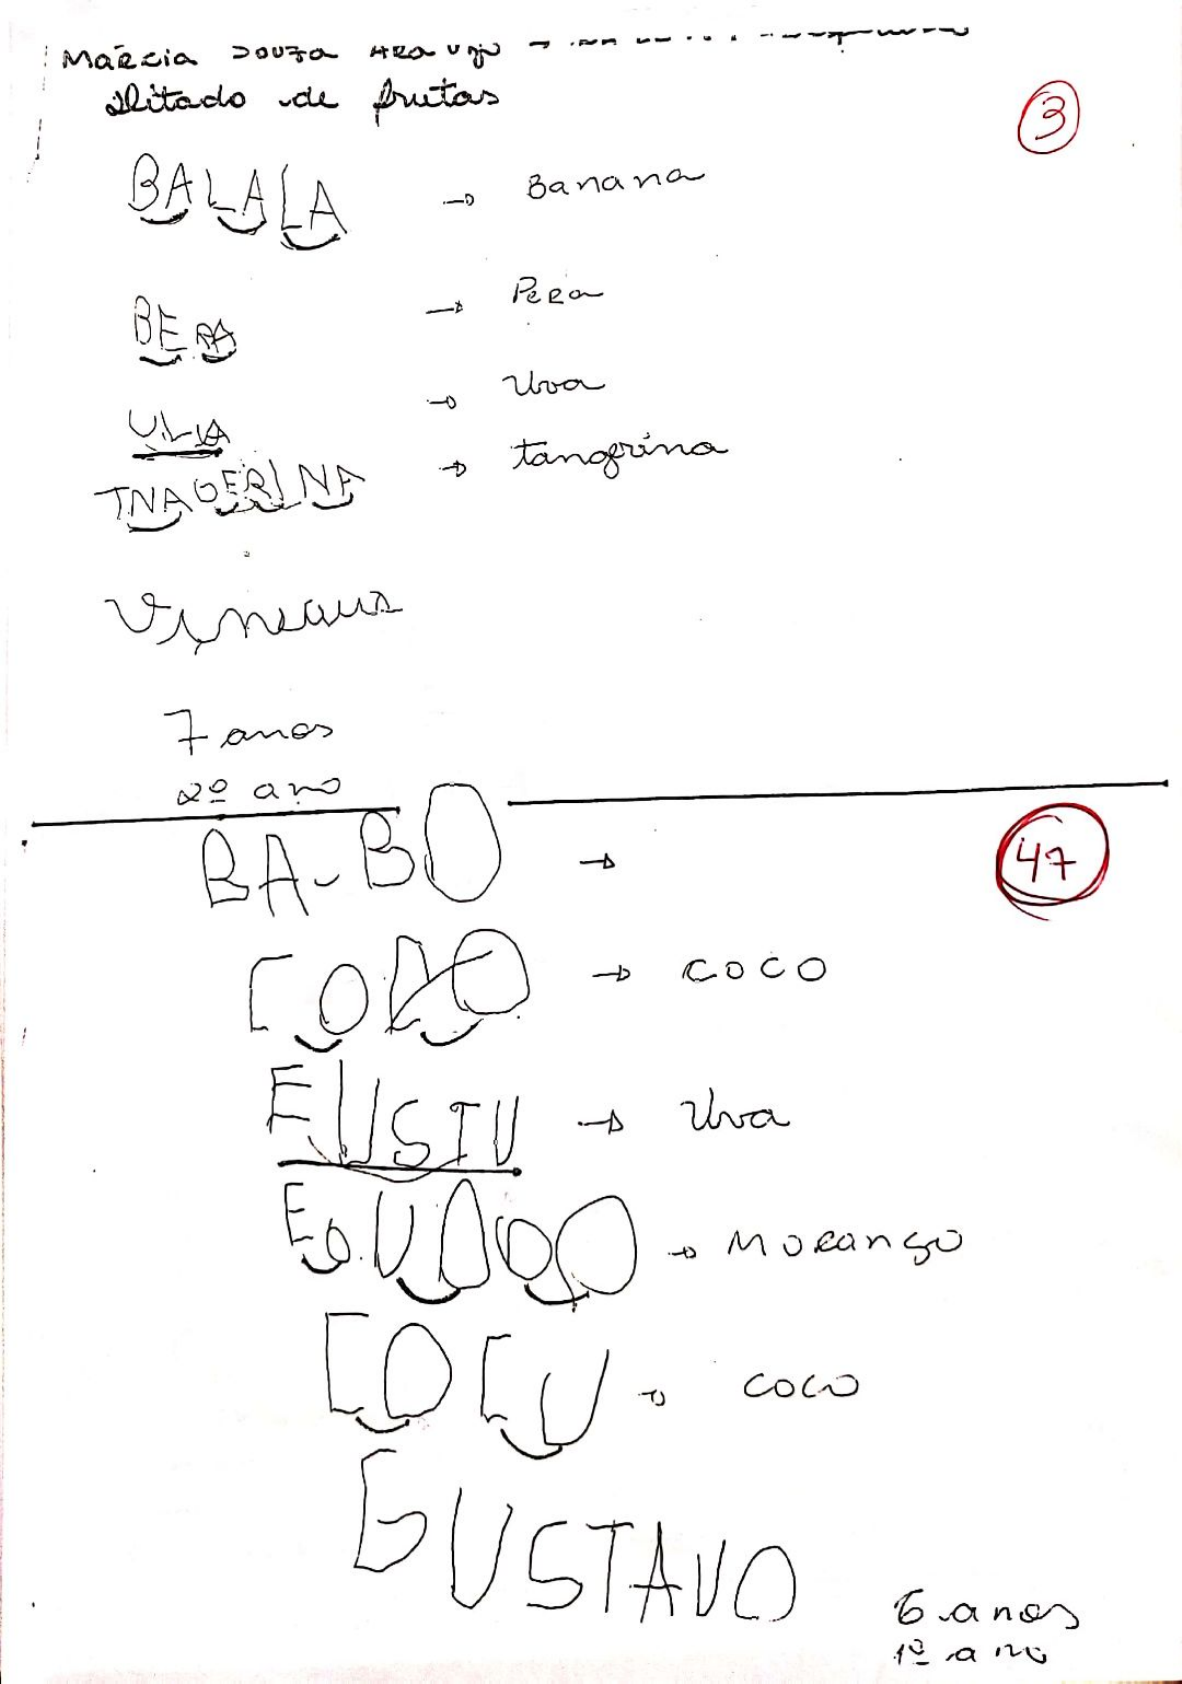 Márcia Souza Araujo →
Ditado de frutas
3
BALALA → Banana
BERA → Pera
ULIA → Uva
TNAGERINA → tangerina
7 anos
2º ano
BA-BO →
47
COCO → coco
EUSTU → Uva
→ Morango
COCU → coco
GUSTAVO
6 anos
1º ano